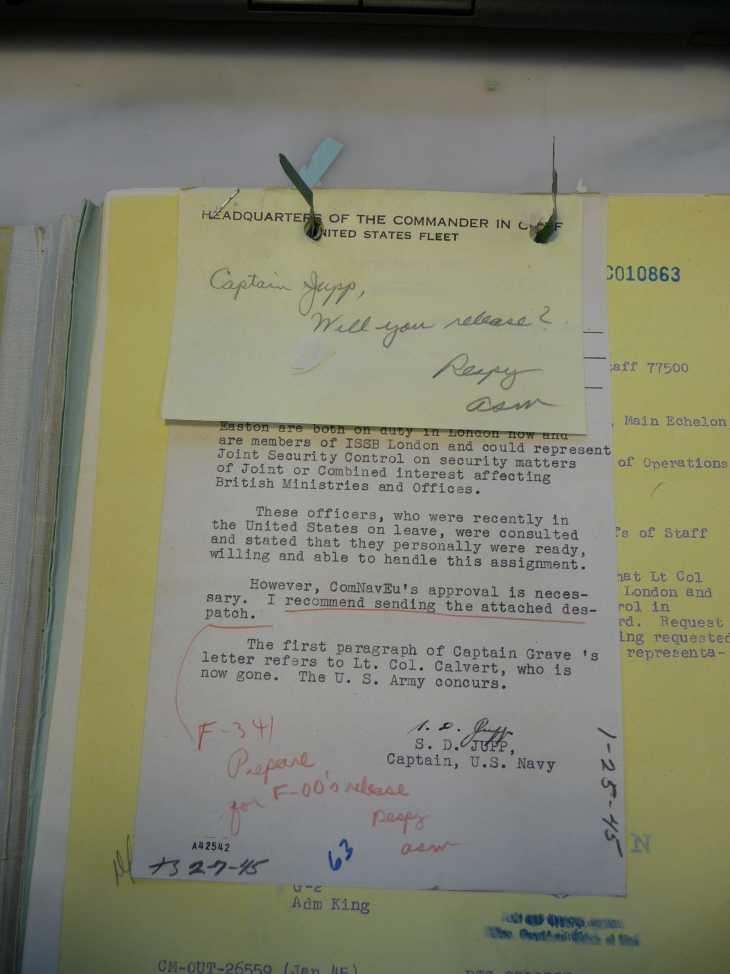 HEADQUARTERS OF THE COMMANDER IN CHIEF
UNITED STATES FLEET
Captain Jupp,
Will you release?
Respy
asm
Easton are both on duty in London now and
are members of ISSB London and could represent
Joint Security Control on security matters
of Joint or Combined interest affecting
British Ministries and Offices.
These officers, who were recently in
the United States on leave, were consulted
and stated that they personally were ready,
willing and able to handle this assignment.
However, ComNavEu's approval is neces-
sary. I recommend sending the attached des-
patch.
The first paragraph of Captain Grave 's
letter refers to Lt. Col. Calvert, who is
now gone. The U. S. Army concurs.
S. D. Jupp
S. D. JUPP,
Captain, U.S. Navy
F-341
Prepare
for F-00's release
Respy
asm
1-25-45
A42542
2-7-45
63
C010863
aff 77500
, Main Echelon
of Operations
s of Staff
hat Lt Col
London and
rol in
rd. Request
ing requested
representa-
N
G-2
Adm King
CM-OUT-26559 (Jan 45)